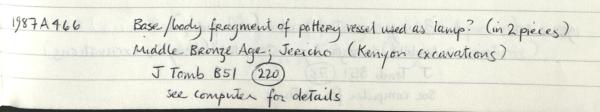 1987A466 Base/body fragment of pottery vessel used as lamp? (in 2 pieces)
Middle Bronze Age; Jericho (Kenyon excavations)
J Tomb B51 220
see computer for details